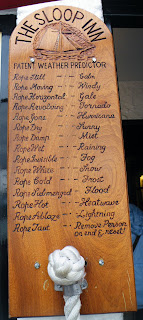 THE SLOOP INN
PATENT WEATHER PREDICTOR
Rope Still --- Calm
Rope Moving --- Windy
Rope Horizontal --- Gale
Rope Revolving --- Tornado
Rope Gone --- Hurricane
Rope Dry --- Sunny
Rope Damp --- Mist
Rope Wet --- Raining
Rope Invisible -- Fog
Rope White --- Snow
Rope Cold --- Frost
Rope Submerged --- Flood
Rope Hot --- Heatwave
Rope Ablaze --- Lightning
Rope Taut --- Remove Person
on end & reset!